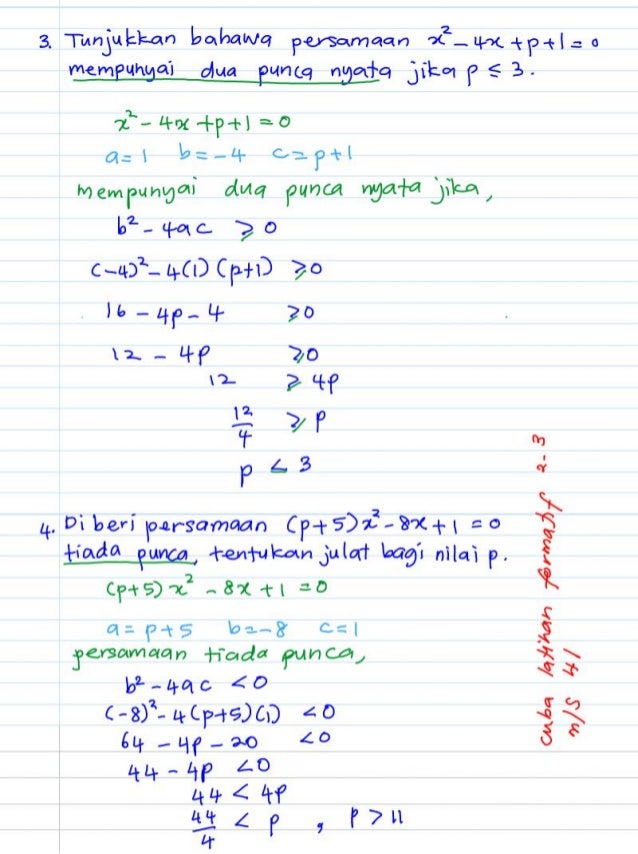 3. Tunjukkan bahawa persamaan x² - 4x + p + 1 = 0
mempunyai dua punca nyata jika p ≤ 3.
x² - 4x + p + 1 = 0
a = 1 b = -4 c = p + 1
mempunyai dua punca nyata jika,
b² - 4ac ≥ 0
(-4)² - 4(1)(p+1) ≥ 0
16 - 4p - 4 ≥ 0
12 - 4p ≥ 0
12 ≥ 4p
12/4 ≥ p
p < 3
4. Diberi persamaan (p+5)x² - 8x + 1 = 0
tiada punca, tentukan julat bagi nilai p.
(p+5)x² - 8x + 1 = 0
a = p+5 b = -8 c = 1
persamaan tiada punca,
b² - 4ac < 0
(-8)² - 4(p+5)(1) < 0
64 - 4p - 20 < 0
44 - 4p < 0
44 < 4p
44/4 < p , p > 11
cuba latihan formatif 2-3
m/s 41